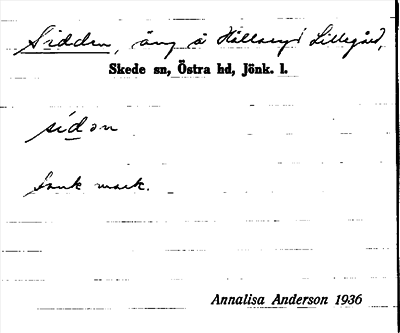 Sidden, äng å Hållaryd Lillegård,
Skede sn, Östra hd, Jönk. l.
sidən
Sank mark.
Annalisa Anderson 1936